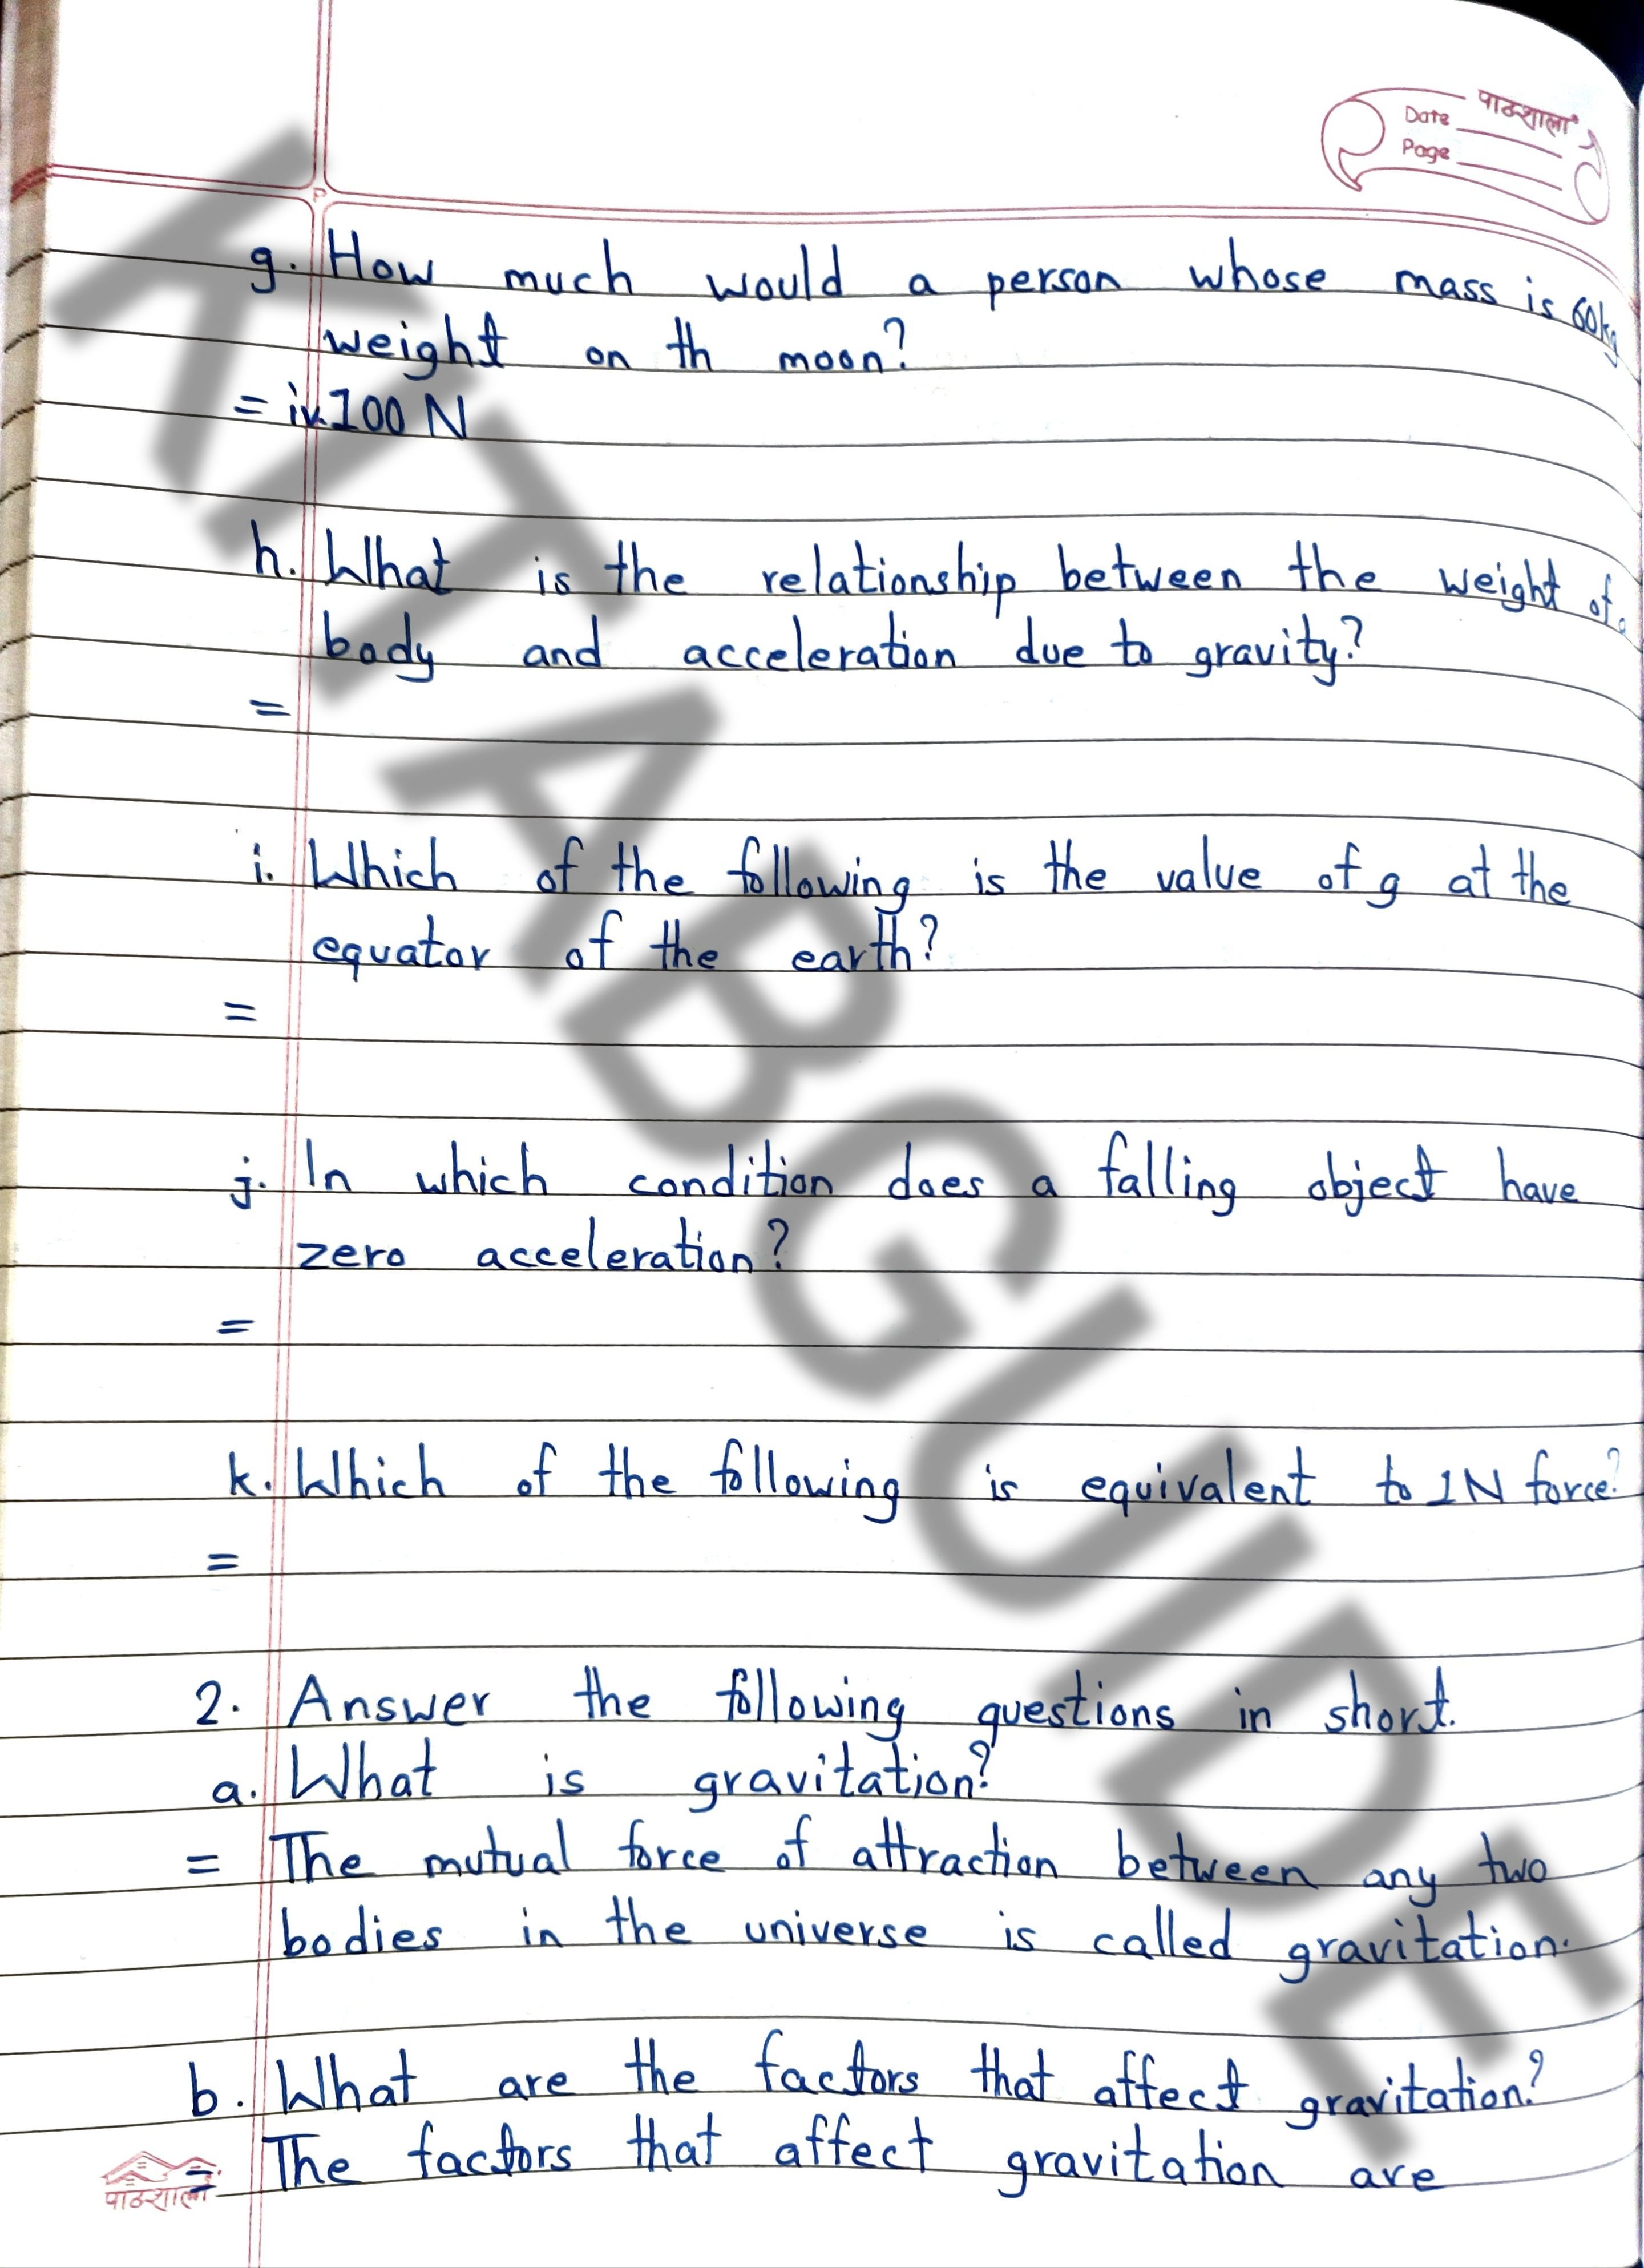 पाठशाला
Date
Page
P
g. How much would a person whose mass is 60kg
weight on th moon?
= iv. 100 N
h. What is the relationship between the weight of a
body and acceleration due to gravity?
=
i. Which of the following is the value of g at the
equator of the earth?
=
j. In which condition does a falling object have
zero acceleration?
=
k. Which of the following is equivalent to 1N force?
=
2. Answer the following questions in short.
a. What is gravitation?
= The mutual force of attraction between any two
bodies in the universe is called gravitation.
b. What are the factors that affect gravitation?
= The factors that affect gravitation are
पाठशाला
KITABGUIDE